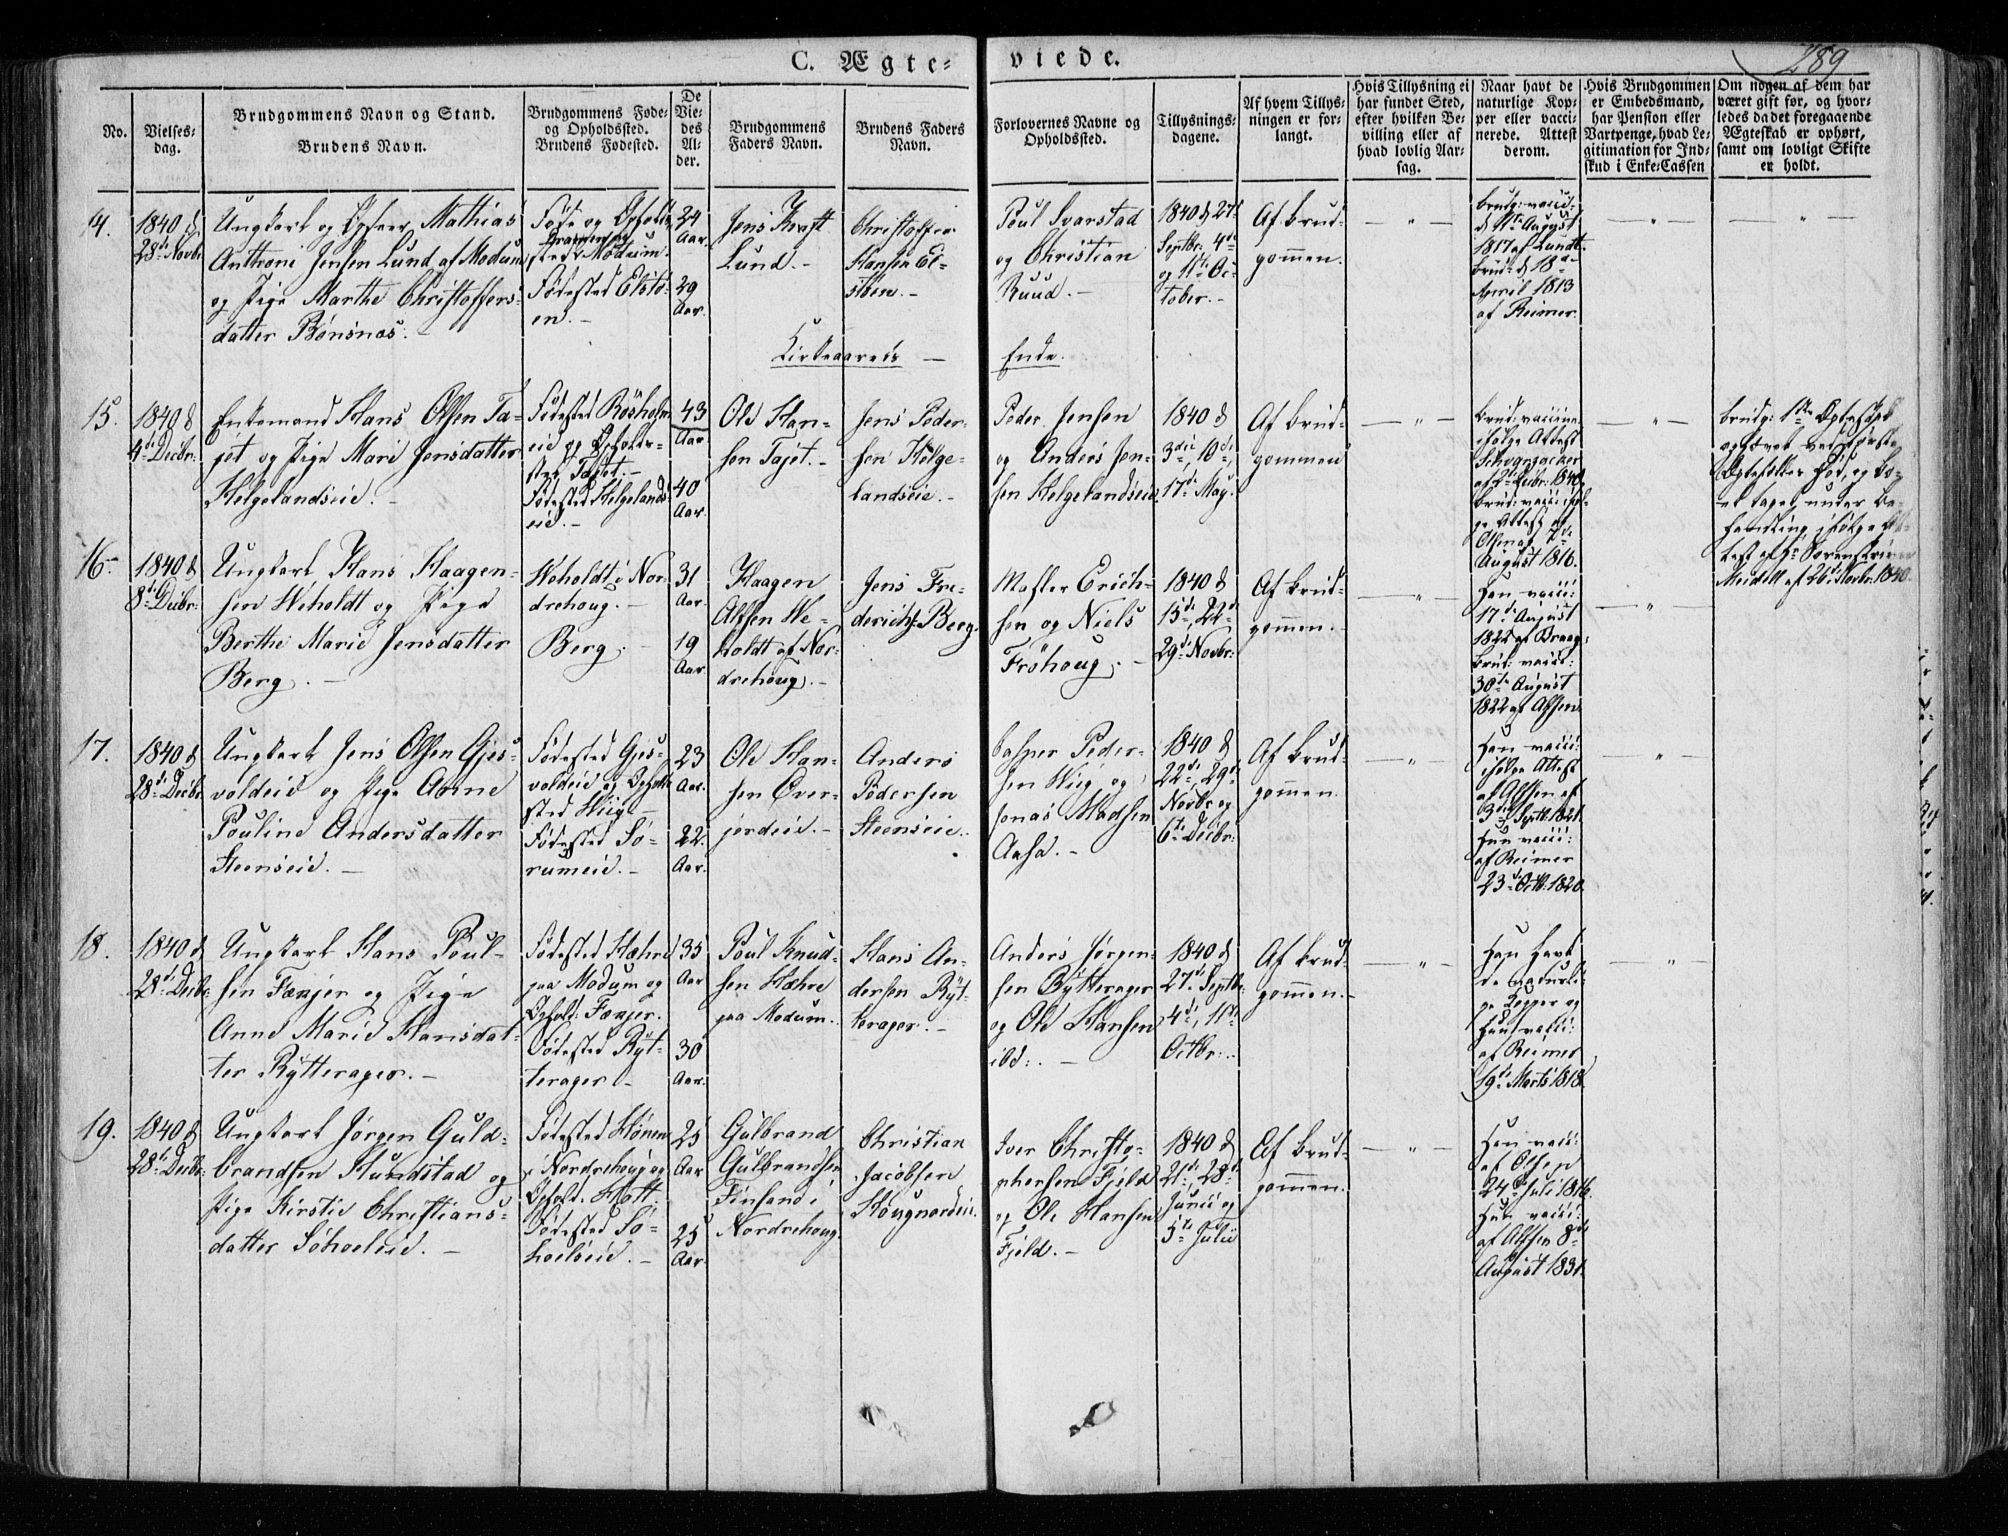 C. Ægte-
viede.
289
No.
Vielses-
dag.
Brudgommens Navn og Stand.
Brudens Navn.
Brudgommens Føde-
og Opholdssted.
Brudens Fødested.
De
Vie-
des
Al-
der.
Brudgommens
Faders Navn.
Brudens Faders
Navn.
Forlovernes Navne og
Opholdssted.
Tillysnings-
dagene.
Af hvem Tillys-
ningen er for-
langt.
Hvis Tillysning ei
har fundet Sted,
efter hvilken Be-
villing eller af
hvad lovlig Aar-
sag.
Naar havt de
naturlige Kop-
per eller vacci-
nerede. Attest
derom.
Hvis Brudgommen
er Embedsmand,
har Pension eller
Vartpenge, hvad Le-
gitimation for Ind-
skud i Enke-Cassen
Om nogen af dem har
været gift før, og hvor-
ledes da det foregaaende
Ægteskab er ophørt,
samt om lovligt Skifte
er holdt.
14.
1840 d
28de Novbr
Ungkarl og Mathias
Anthoni Jensen Lund af Modum
og Pige Marthe Christoffers-
datter Bönsnæs.
Föde og Opholds-
Drammen og
sted Modum.
Födested Elstö-
en.
24
Aar.
29
Aar.
Jens Kraft
Lund.
Christoffer
Hansen El-
stöen.
Poul Svarstad
og Christian
Ruud.
1840 d 27de
Septbr. 4de
og 11te Oc-
tober.
Af Brud-
gommen.
Brudg: vacci-
d 11te August
1817 af Lundt.
Brud: d 18de
April 1813
af Reimer.
Kirkeaarets
Ende.
15.
1840 d
4de Decbr:
Enkemand Hans Olsen Ta-
jet og Pige Mari Jensdatter
Helgelandseie.
Födested Rösholm-
eie og Opholds-
sted Tajet.
Födested Helgelands-
eie.
43
Aar
40
Aar.
Ole Han-
sen Tajet.
Jens Peder-
sen Helge-
landseie.
Peder Jensen
og Anders Jen-
sen Helgelandseie
1840 d
3die, 10de,
17de May.
Af Brud-
gommen
Brudg: vaccine
ifölge Attest
af 2de Decbr: 1840.
Brud: vacci: iföl-
ge Attest af
Olsen af 7de
August 1816.
Brudg: 1ste Ægteskab
ophævet ved förste
Ægtefælles Död, og Bo-
et taget under Be-
handling ifölge At-
test af Hr Sorenskriver
Meidell af 26de Novbr. 1840.
16
1840 d
8de Decbr:
Ungkarl Hans Haagen-
sen Weholdt og Pige
Berthe Marie Jensdatter
Berg.
Weholdt i Nor-
drehoug.
Berg.
31
Aar.
19
Aar.
Haagen
Alfsen We-
holdt af Nor-
drehoug.
Jens Fre-
derichs: Berg.
Master Erich-
sen og Niels
Fröhoug.
1840 d
15de, 22de
29de Novbr:
Af Brud-
gommen.
Han vacci:
17de August
1822 af Braag:
Brud: vacci:
30te August
1822 af Alfsen.
17.
1840 d
28de Decbr
Ungkarl Jens Olsen Gjes-
voldeie og Pige Anne
Pouline Andersdatter
Steenseie.
Födested Gjes-
voldeie og Opholds-
sted Wiig.
Födested Sö-
rumeie.
23
Aar.
22.
Aar.
Ole Han-
sen Over-
jordeie.
Anders
Pedersen
Steenseie.
Casper Peder-
sen Wiig og
Jonas Madsen
Aasa.
1840 d
22de, 29de
Novbr og
6te Decbr:
Af Brud-
gommen.
Han vacci:
ifölge Attest
af Alfsen af
3de Septbr. 1821.
Hun vacci:
af Reimer
23de Octb: 1820.
18.
1840 d
28de Decbr:
Ungkarl Hans Poul-
sen Fæxjer og Pige
Anne Marie Hansdat-
ter Rytterager.
Födested Hæhre
paa Modum og
Ophold: Fæxjer.
Födested Ryt-
terager.
35
Aar
30
Aar.
Poul Knud-
sen Hæhre
paa Modum.
Hans An-
dersen Ryt-
terager.
Anders Jörgen-
sen Rytterager
og Ole Hansen
ibd:
1840 d
27de Septbr.
4de, 11te
Octbr:
Af Brud-
gommen.
Han havt
de naturli-
ge Kopper og
Hun vacci:
af Reimer
19de Marts 1818.
19.
1840 d
28de Decbr:
Ungkarl Jörgen Guld-
brandsen Hundstad og
Pige Kirstie Christians-
datter Söhoeleie.
Födested Hönen
i Nordrehoug og
Ophold:
Födested Sö-
hoelseie.
25
Aar
25
Aar.
Gulbrand
Gulbrandsen
Finsand i
Nordrehoug.
Christian
Jacobsen
Hougnordeie.
Iver Christo-
phersen Fjeld
og Ole Hansen
Fjeld.
1840 d
21de, 28de
Junii og
5te Julii
Af Brud-
gommen.
Han vacci:
af Olsen
24de Juli 1816.
Hun vacci:
af Alfsen 8de
August 1831.